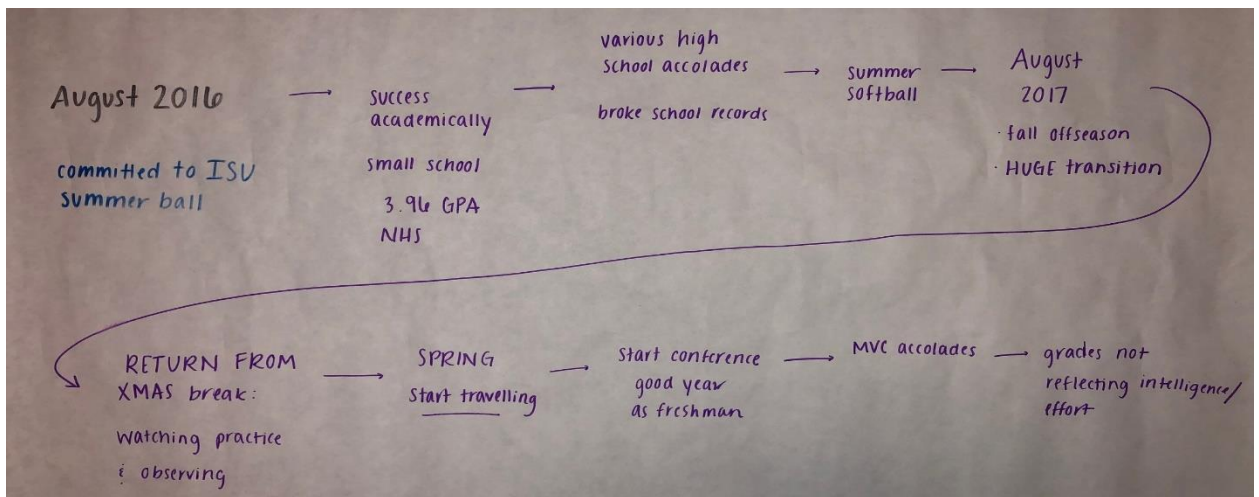 August 2016
committed to ISU
summer ball
success
academically
small school
3.96 GPA
NHS
various high
school accolades
broke school records
summer
softball
August
2017
· fall offseason
· HUGE transition
RETURN FROM
XMAS break:
watching practice
& observing
SPRING
Start travelling
Start conference
good year
as freshman
MVC accolades
grades not
reflecting intelligence/
effort